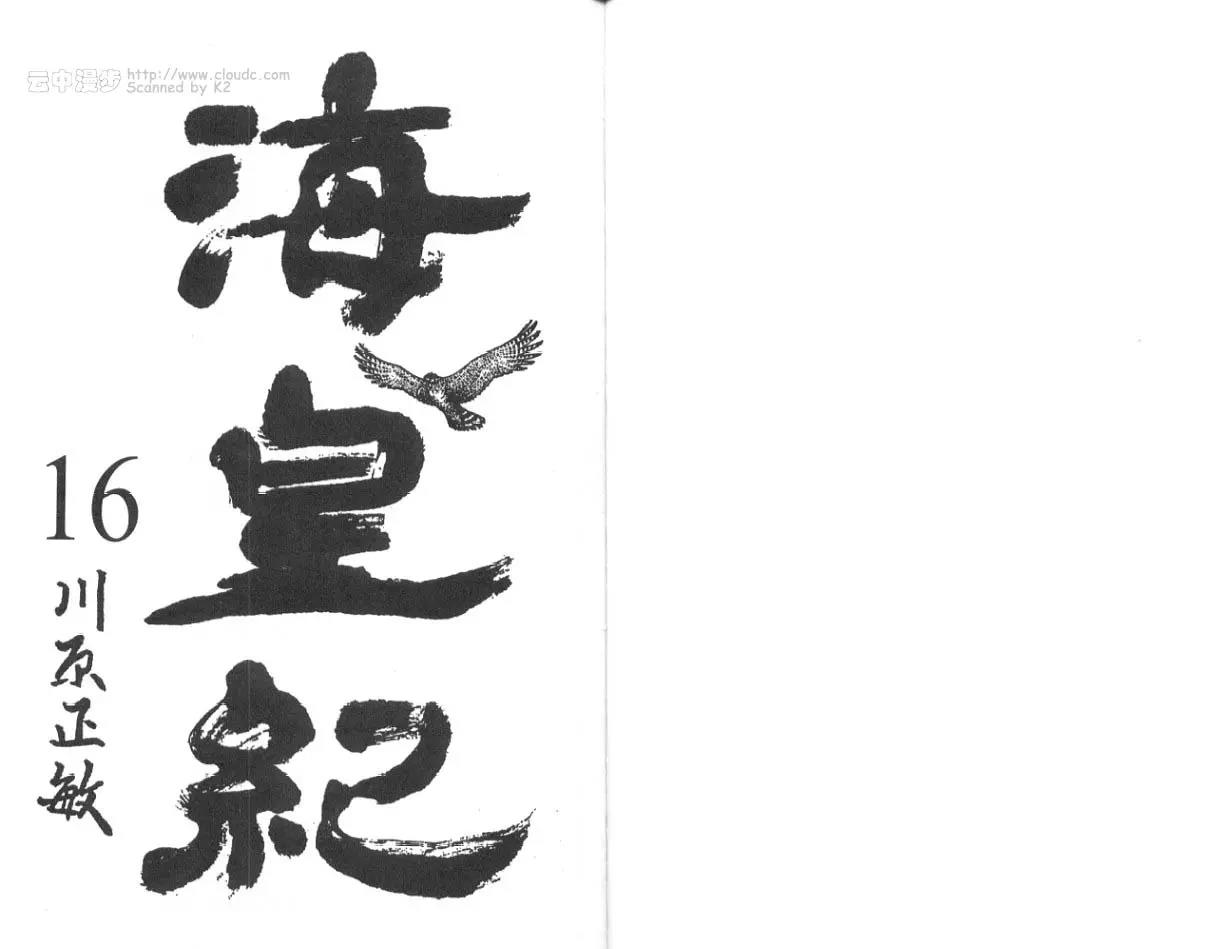 云中漫步 http://www.cloudc.com
Scanned by K2
海皇紀
16
川原正敏